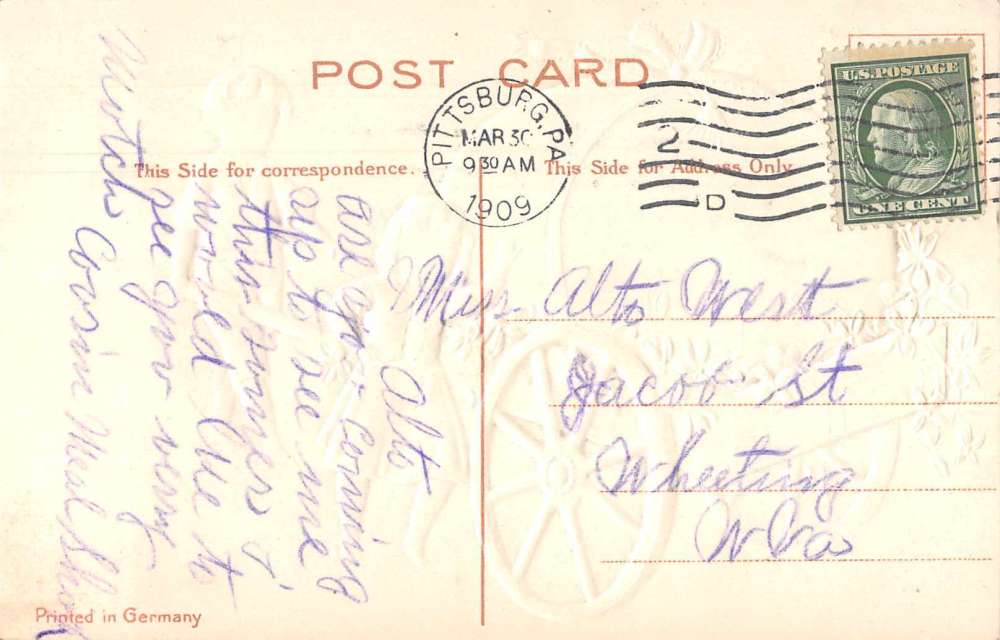 POST CARD
This Side for correspondence.
This Side for Address Only.
PITTSBURG, PA
MAR 30
9 30 AM
1909
2
D
U.S. POSTAGE
ONE CENT
Miss Alto West
Jacob St
Wheeling
W Va
Alto
are you coming
up to see me
this summer I
would like to
see you very
much Cousin Neal
Printed in Germany